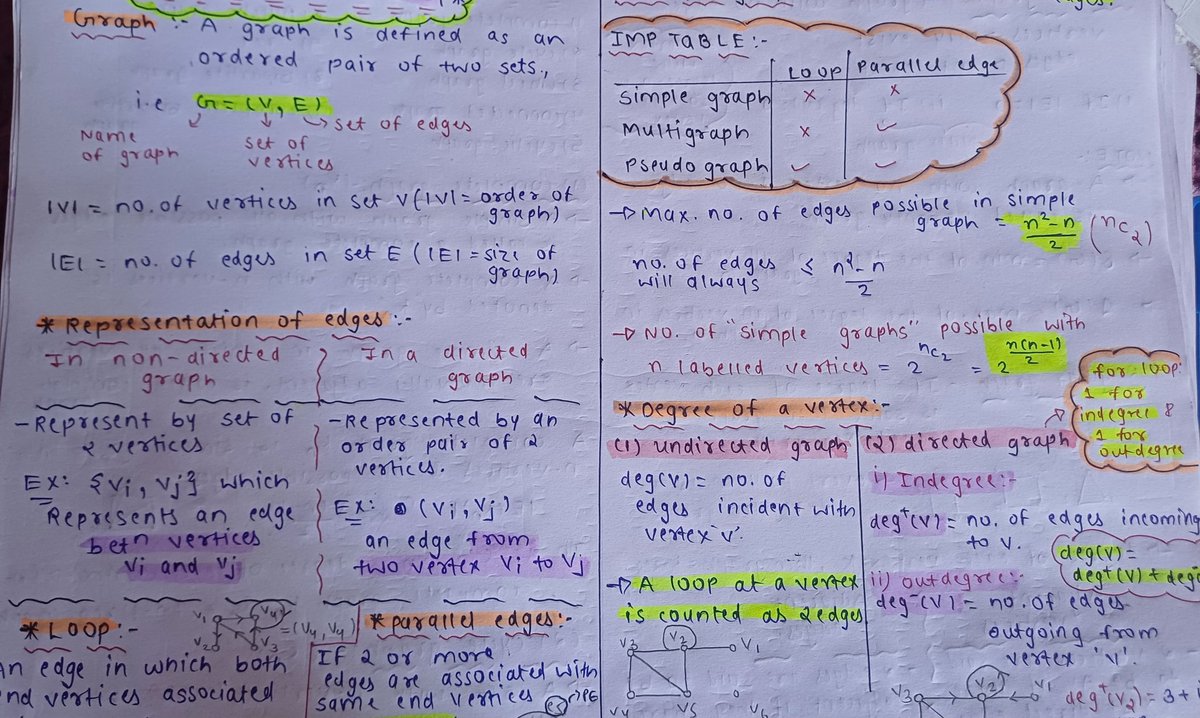 Graph :- A graph is defined as an
ordered pair of two sets.,
i.e G = (V, E)
Name of graph
set of vertices
set of edges
|V| = no. of vertices in set V (|V| = order of
graph)
|E| = no. of edges in set E (|E| = size of
graph)
* Representation of edges :-
In non-directed
graph
- Represent by set of
2 vertices
Ex: {Vi, Vj} which
Represents an edge
betn vertices
Vi and Vj
In a directed
graph
- Represented by an
order pair of 2
vertices.
Ex: (Vi, Vj)
an edge from
two vertex Vi to Vj
* LOOP :-
V1 V4
V2 V3
= (V4, V4)
An edge in which both
end vertices associated
* parallel edges :-
If 2 or more
edges are associated with
same end vertices
IMP TABLE :-
LOOP parallel edge
simple graph x x
Multigraph x ✓
pseudo graph ✓ ✓
→ Max. no. of edges possible in simple
graph = n²-n/2 (nC2)
no. of edges ≤ n²-n/2
will always
→ NO. of "simple graphs" possible with
n labelled vertices = 2^nC2 = 2^n(n-1)/2
* Degree of a vertex :-
(1) undirected graph
deg(V) = no. of
edges incident with
vertex 'v'.
→ A loop at a vertex
is counted as 2edges
V3 V2 V1
V4 V5 V6
(2) directed graph
for loop:
1 for
indegree &
1 for
outdegree
i) Indegree :-
deg⁺(V) = no. of edges incoming
to v.
deg(v) =
deg⁺(v) + deg⁻
ii) outdegree :-
deg⁻(V) = no. of edges
outgoing from
vertex 'v'.
V3 V2 V1
deg⁺(V2) = 3 +